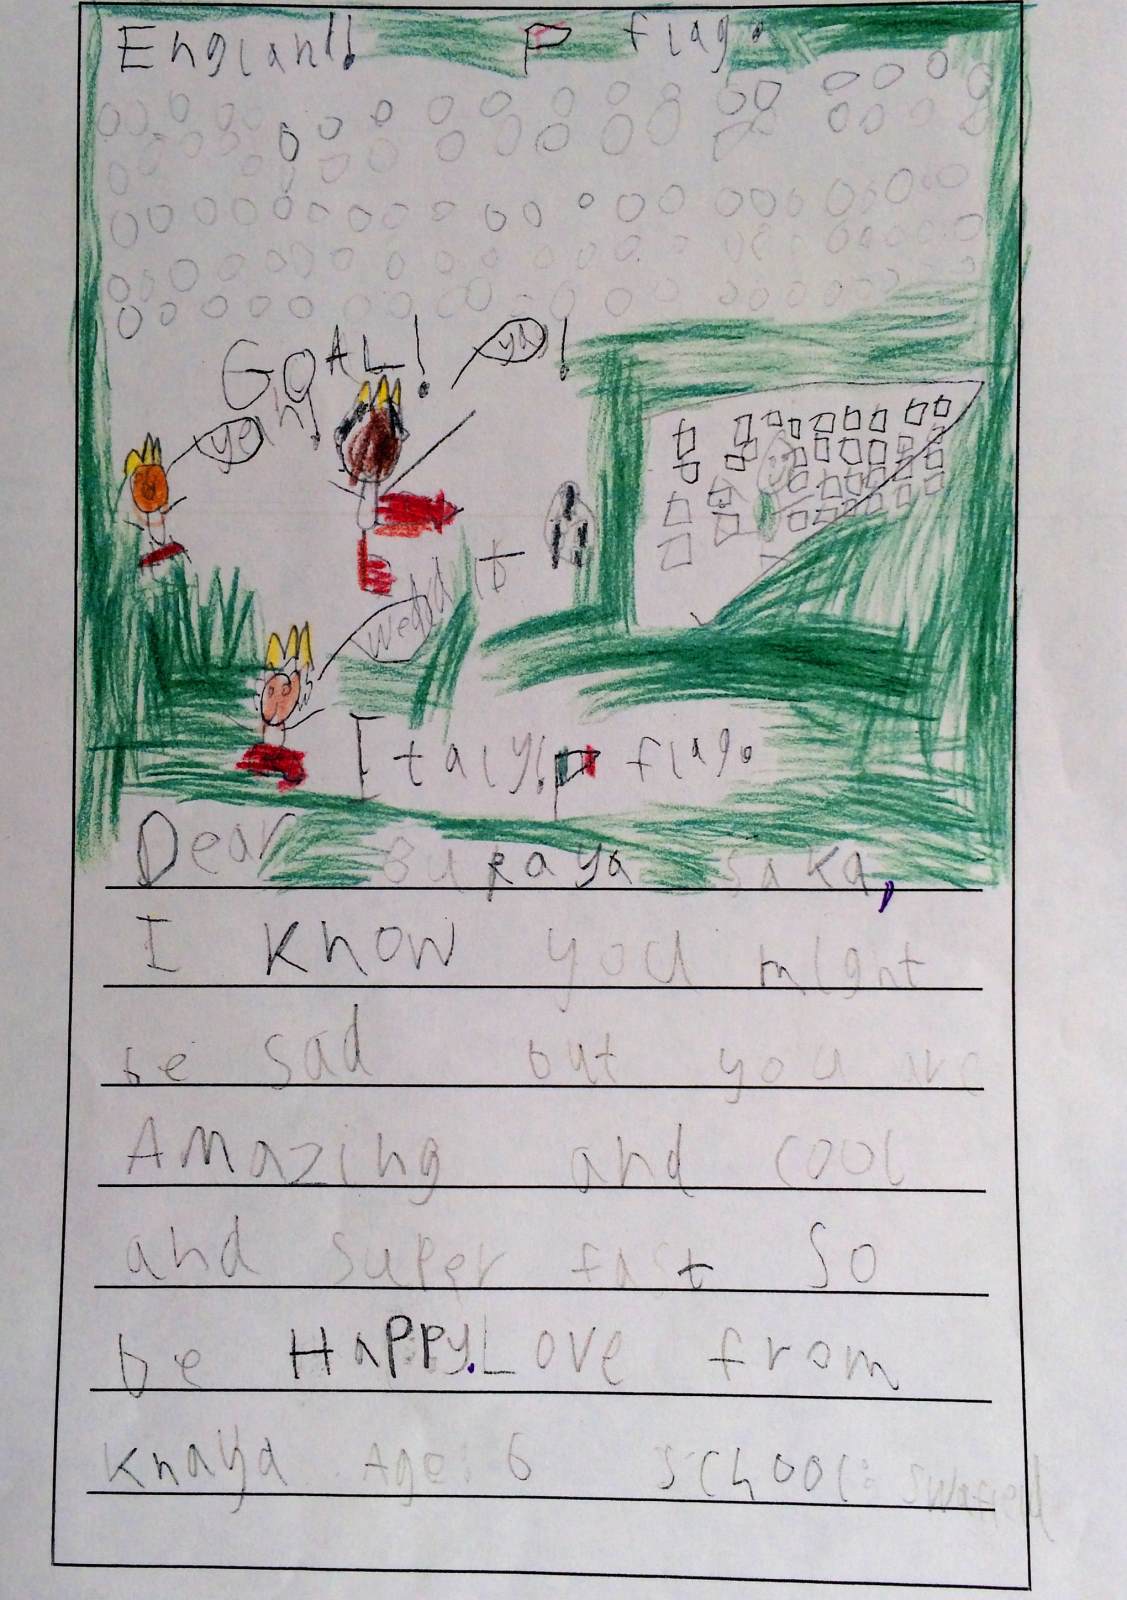 England! flag.
GOAL!
ya!
yeah!
it
Italy! flag.
Dear Bukaya Saka,
I know you might
be sad but you are
Amazing and cool
and super fast So
be Happy. Love from
Age: 6 School: